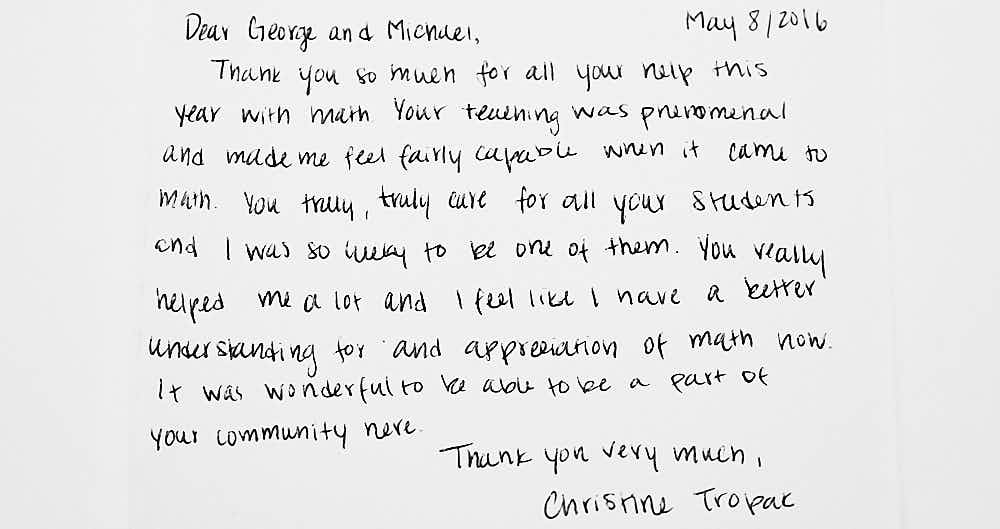 Dear George and Michael,
May 8/2016
Thank you so much for all your help this
year with math Your teaching was phenomenal
and made me feel fairly capable when it came to
math. You truly, truly care for all your students
and I was so lucky to be one of them. You really
helped me a lot and I feel like I have a better
understanding for and appreciation of math now.
It was wonderful to be able to be a part of
your community here.
Thank you very much,
Christine Tropak